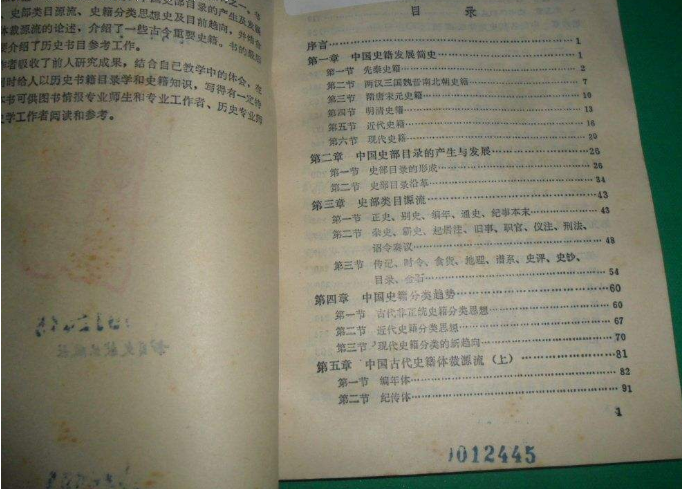 史部类目源流、史籍分类思想史及目前趋向,并结合
体裁源流的论述,介绍了一些古今重要史籍。书的最后
介绍了历史书目参考工作。
者吸收了前人研究成果,结合自己教学中的体会,在
时给人以历史书籍目录学和史籍知识,写得有一定特
书可供图书情报专业师生和专业工作者、历史专业师
学工作者阅读和参考。
目 录
序言 1
第一章 中国史籍发展简史 1
第一节 先秦史籍 2
第二节 两汉三国魏晋南北朝史籍 7
第三节 隋唐宋元史籍 10
第四节 明清史籍 13
第五节 近代史籍 16
第六节 现代史籍 20
第二章 中国史部目录的产生与发展 26
第一节 史部目录的形成 26
第二节 史部目录沿革 34
第三章 史部类目源流 43
第一节 正史、别史、编年、通史、纪事本末 43
第二节 杂史、霸史、起居注、旧事、职官、仪注、刑法、
诏令奏议 48
第三节 传记、时令、食货、地理、谱系、史评、史钞、
目录、金石 54
第四章 中国史籍分类趋势 60
第一节 古代非正统史籍分类思想 60
第二节 近代史籍分类思想 67
第三节 现代史籍分类的新趋向 70
第五章 中国古代史籍体裁源流(上) 81
第一节 编年体 82
第二节 纪传体 91
1
1012445